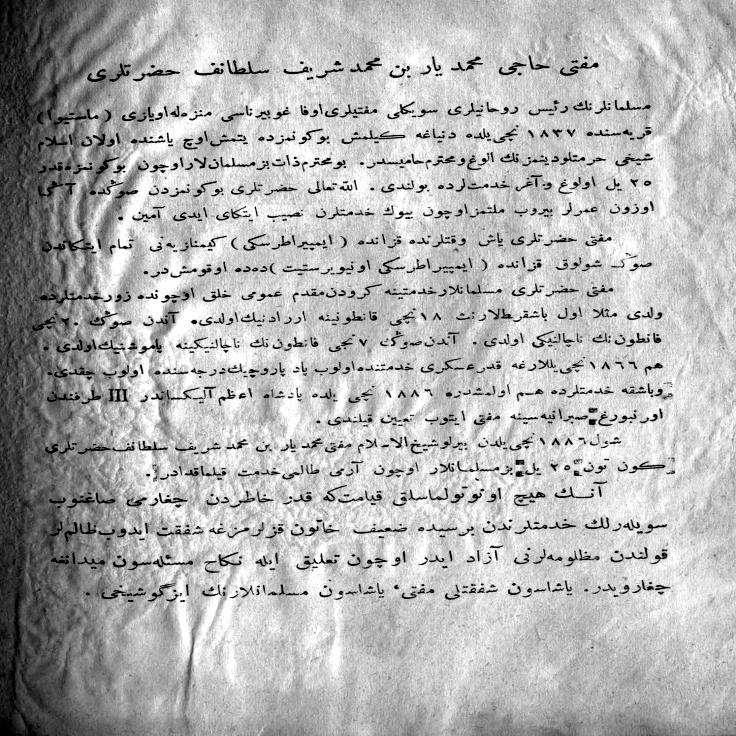 مفتی حاجی محمد یار بن محمد شریف سلطانف حضرتلری
مسلمانلرنك رئیس روحانیلری سویكلی مفتیلری اوفا غوبیرناسی منزەله اویازی ( ماستیوا )
قریه‌سنده ١٨٣٧ نچی یلده دنیاغه كیلمش بو كونمزده یتمش اوچ یاشنده اولان اسلام
شیخی حرمتلو دینمزنك الوغ و محترم حامیسدر. بو محترم ذات بز مسلمانلار اوچون بو كونمزه قدر
٢٥ یل اولوغ و آغر خدمت‌لرده بولندی . الله تعالی حضرتلری بو كونمزدن صوڭده آڭا
اوزون عمرلر بیروب ملتمز اوچون بیوك خدمتلرن نصیب ایتكای ایدی آمین .
مفتی حضرتلری یاش وقتلرنده قزانده ( ایمپیراطرسكی ) كیمنازیه‌نی تمام ایتكاندن
صوڭ شولوق قزانده ( ایمپیراطرسكی اونیویرستیت ) ده‌ده اوقومش در.
مفتی حضرتلری مسلمانلار خدمتینه كرودن مقدم عمومی خلق اوچونده زور خدمتلرده
ولدی مثلا اول باشقرطلارنڭ ١٨ نچی قانطونینه ارزادنیك اولدی. آندن صوڭ ٢٠ نچی
قانطون‌نك ناچالنیكی اولدی . آندن صوڭ ٧ نچی قانطون‌نك ناچالنیكینه پاموشنیك اولدی .
هم ١٨٦٦ نچی یللارغه قدر عسكری خدمتنده اولوب پاد پاروچیك درجه‌سنده اولوب چقدی.
وباشقه خدمتلرده هم اولمشدره ١٨٨٦ نچی یلده پادشاه اعظم آلیكساندر III طرفندن
اورنبورغ صبرانیه‌سینه مفتی ایتوب تعیین قیلندی .
شول ١٨٨٦ نچی یلدن بیرلو شیخ الاسلام مفتی محمد یار بن محمد شریف سلطانف حضرتلری
كون تون ٢٥ یل بز مسلمانلار اوچون آرمی طالمی خدمت قیلماقدادر.
آنڭ هیچ اوتوتولماسلق قیامت‌كه قدر خاطردن چغارمی صاغنوب
سویله‌رلك خدمتلرندن برسیده ضعیف خاتون قزلرمزغه شفقت ایدوب ظالم‌لر
قولندن مظلومه‌لرنی آزاد ایدر اوچون تعلیق ایله نكاح مسئله‌سون میدانغه
چغارویدر. یاشاسون شفقتلی مفتیء یاشاسون مسلمانلارنك ایزگو شیخی .